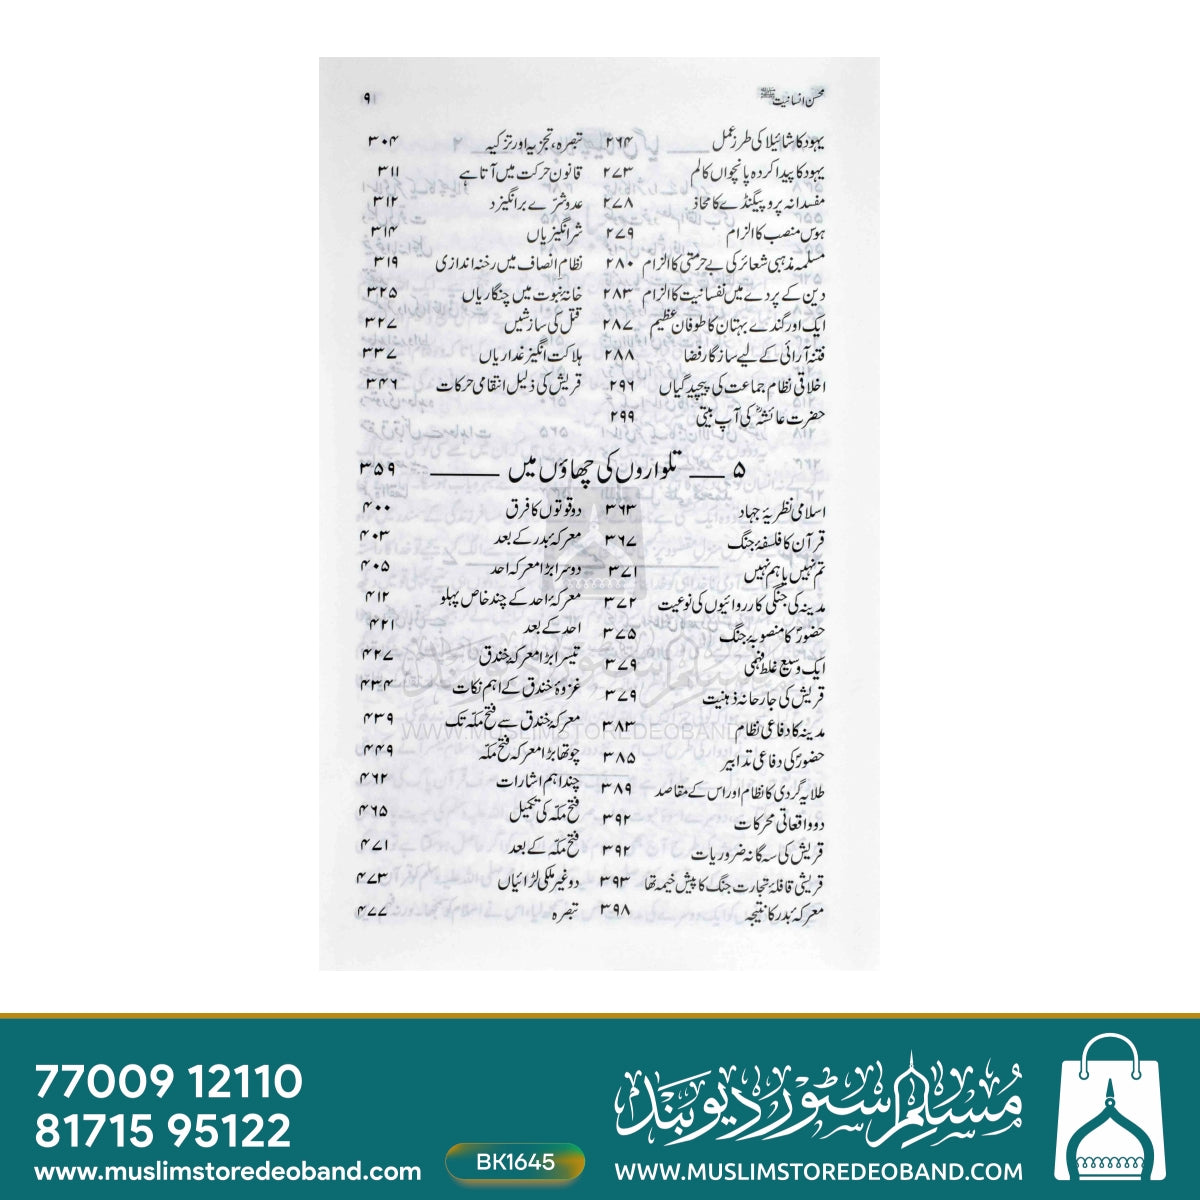 محسن انسانیت ﷺ
۹
یہود کا شائیلا کی طرز عمل ۲۶۴
یہود کا پیدا کردہ پانچواں کالم ۲۷۳
مفسدانہ پروپیگنڈے کا محاذ ۲۷۸
ہوس منصب کا الزام ۲۷۹
مسلمہ مذہبی شعائر کی بے حرمتی کا الزام ۲۸۰
دین کے پردے میں نفسانیت کا الزام ۲۸۳
ایک اور گندے بہتان کا طوفان عظیم ۲۸۷
فتنہ آرائی کے لیے سازگار فضا ۲۸۸
اخلاقی نظام جماعت کی پیچیدگیاں ۲۹۶
حضرت عائشہؓ کی آپ بیتی ۲۹۹
تبصرہ، تجزیہ اور تزکیہ ۳۰۴
قانون حرکت میں آتا ہے ۳۱۱
عدو شرّے برانگیزد ۳۱۲
شر انگیزیاں ۳۱۴
نظام انصاف میں رخنہ اندازی ۳۱۹
خانۂ نبوت میں چنگاریاں ۳۲۵
قتل کی سازشیں ۳۲۷
ہلاکت انگیز غداریاں ۳۳۷
قریش کی ذلیل انتقامی حرکات ۳۴۶
۵ ـــ تلواروں کی چھاؤں میں ـــــ ۳۵۹
اسلامی نظریۂ جہاد ۳۶۳
قرآن کا فلسفۂ جنگ ۳۶۷
تم نہیں یا ہم نہیں ۳۷۱
مدینہ کی جنگی کارروائیوں کی نوعیت ۳۷۲
حضورؐ کا منصوبۂ جنگ ۳۷۵
ایک وسیع غلط فہمی ۳۷۹
قریش کی جارحانہ ذہنیت ۳۷۹
مدینہ کا دفاعی نظام ۳۸۳
حضورؐ کی دفاعی تدابیر ۳۸۵
طلایہ گردی کا نظام اور اس کے مقاصد ۳۸۹
دو واقعاتی محرکات ۳۹۲
قریش کی سہ گانہ ضروریات ۳۹۲
قریشی قافلۂ تجارت جنگ کا پیش خیمہ تھا ۳۹۳
معرکۂ بدر کا نتیجہ ۳۹۸
دو قوتوں کا فرق ۴۰۰
معرکۂ بدر کے بعد ۴۰۳
دوسرا بڑا معرکہ احد ۴۰۵
معرکۂ احد کے چند خاص پہلو ۴۱۲
احد کے بعد ۴۲۱
تیسرا بڑا معرکۂ خندق ۴۲۷
غزوۂ خندق کے اہم نکات ۴۳۴
معرکۂ خندق سے فتح مکّہ تک ۴۳۹
چوتھا بڑا معرکہ فتح مکّہ ۴۴۹
چند اہم اشارات ۴۶۲
فتح مکّہ کی تکمیل ۴۶۵
فتح مکّہ کے بعد ۴۷۱
دو غیر ملکی لڑائیاں ۴۷۳
تبصرہ ۴۷۷
مسلم سٹور دیوبند
WWW.MUSLIMSTOREDEOBAND.COM
77009 12110
81715 95122
www.muslimstoredeoband.com
BK1645
مسلم سٹور دیوبند
WWW.MUSLIMSTOREDEOBAND.COM